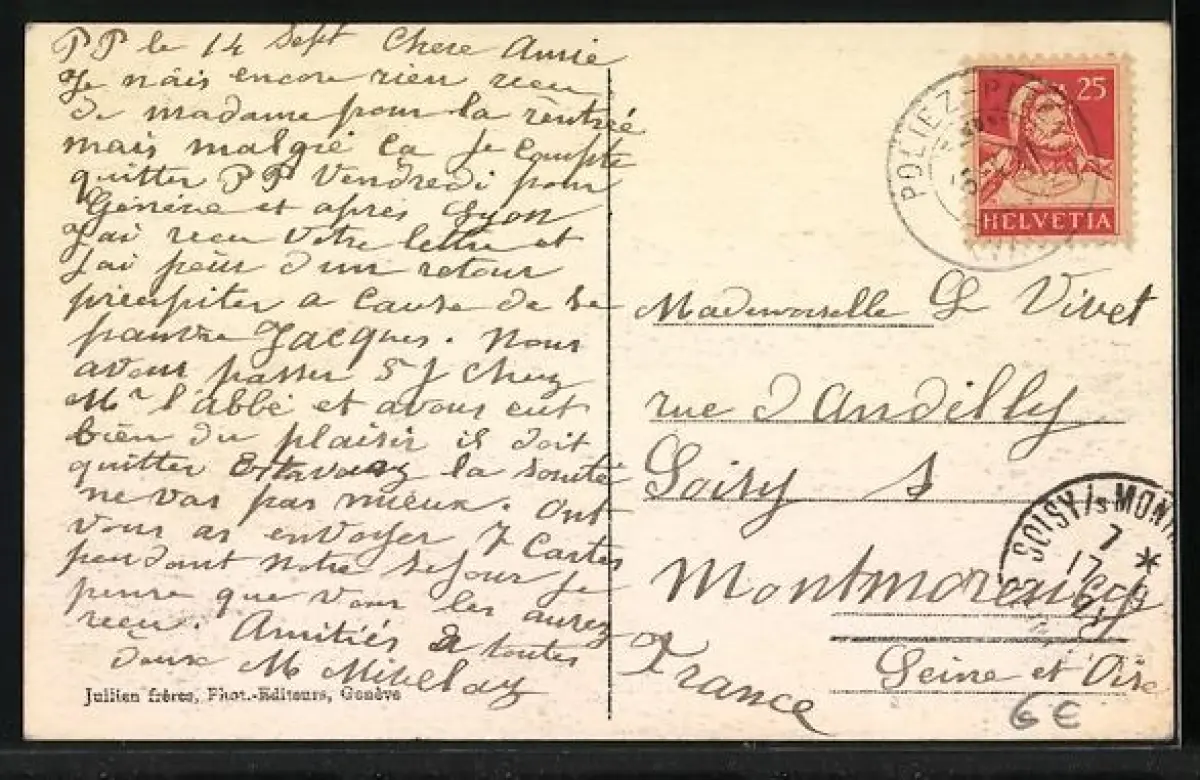 PP le 14 Sept Chere Amie
Je nais encore rien recu
de madame pour la rentrée
mais malgré ca je compte
quitter PP Vendredi pour
Genève et après Lyon
J'ai recu votre lettre et
j'ai peur d'un retour
precipiter a cause de se
pauvre Jacques. Nous
avons passer 5 J chez
Mr l'abbé et avons eut
bien du plaisir il doit
quitter la santé
ne vas pas mieux. Ont
vous as envoyer 7 Cartes
pendant notre sejour je
pense que vous les aurez
recu. Amitiés a toutes
deux M
Jullien frères, Phot.-Editeurs, Genève
25
HELVETIA
POLIEZ-P
Mademoiselle Le Vivet
rue d'Andilly
Soisy s
Montmorency
Seine et Oise
France
SOISY /s MONT
7
17
6€